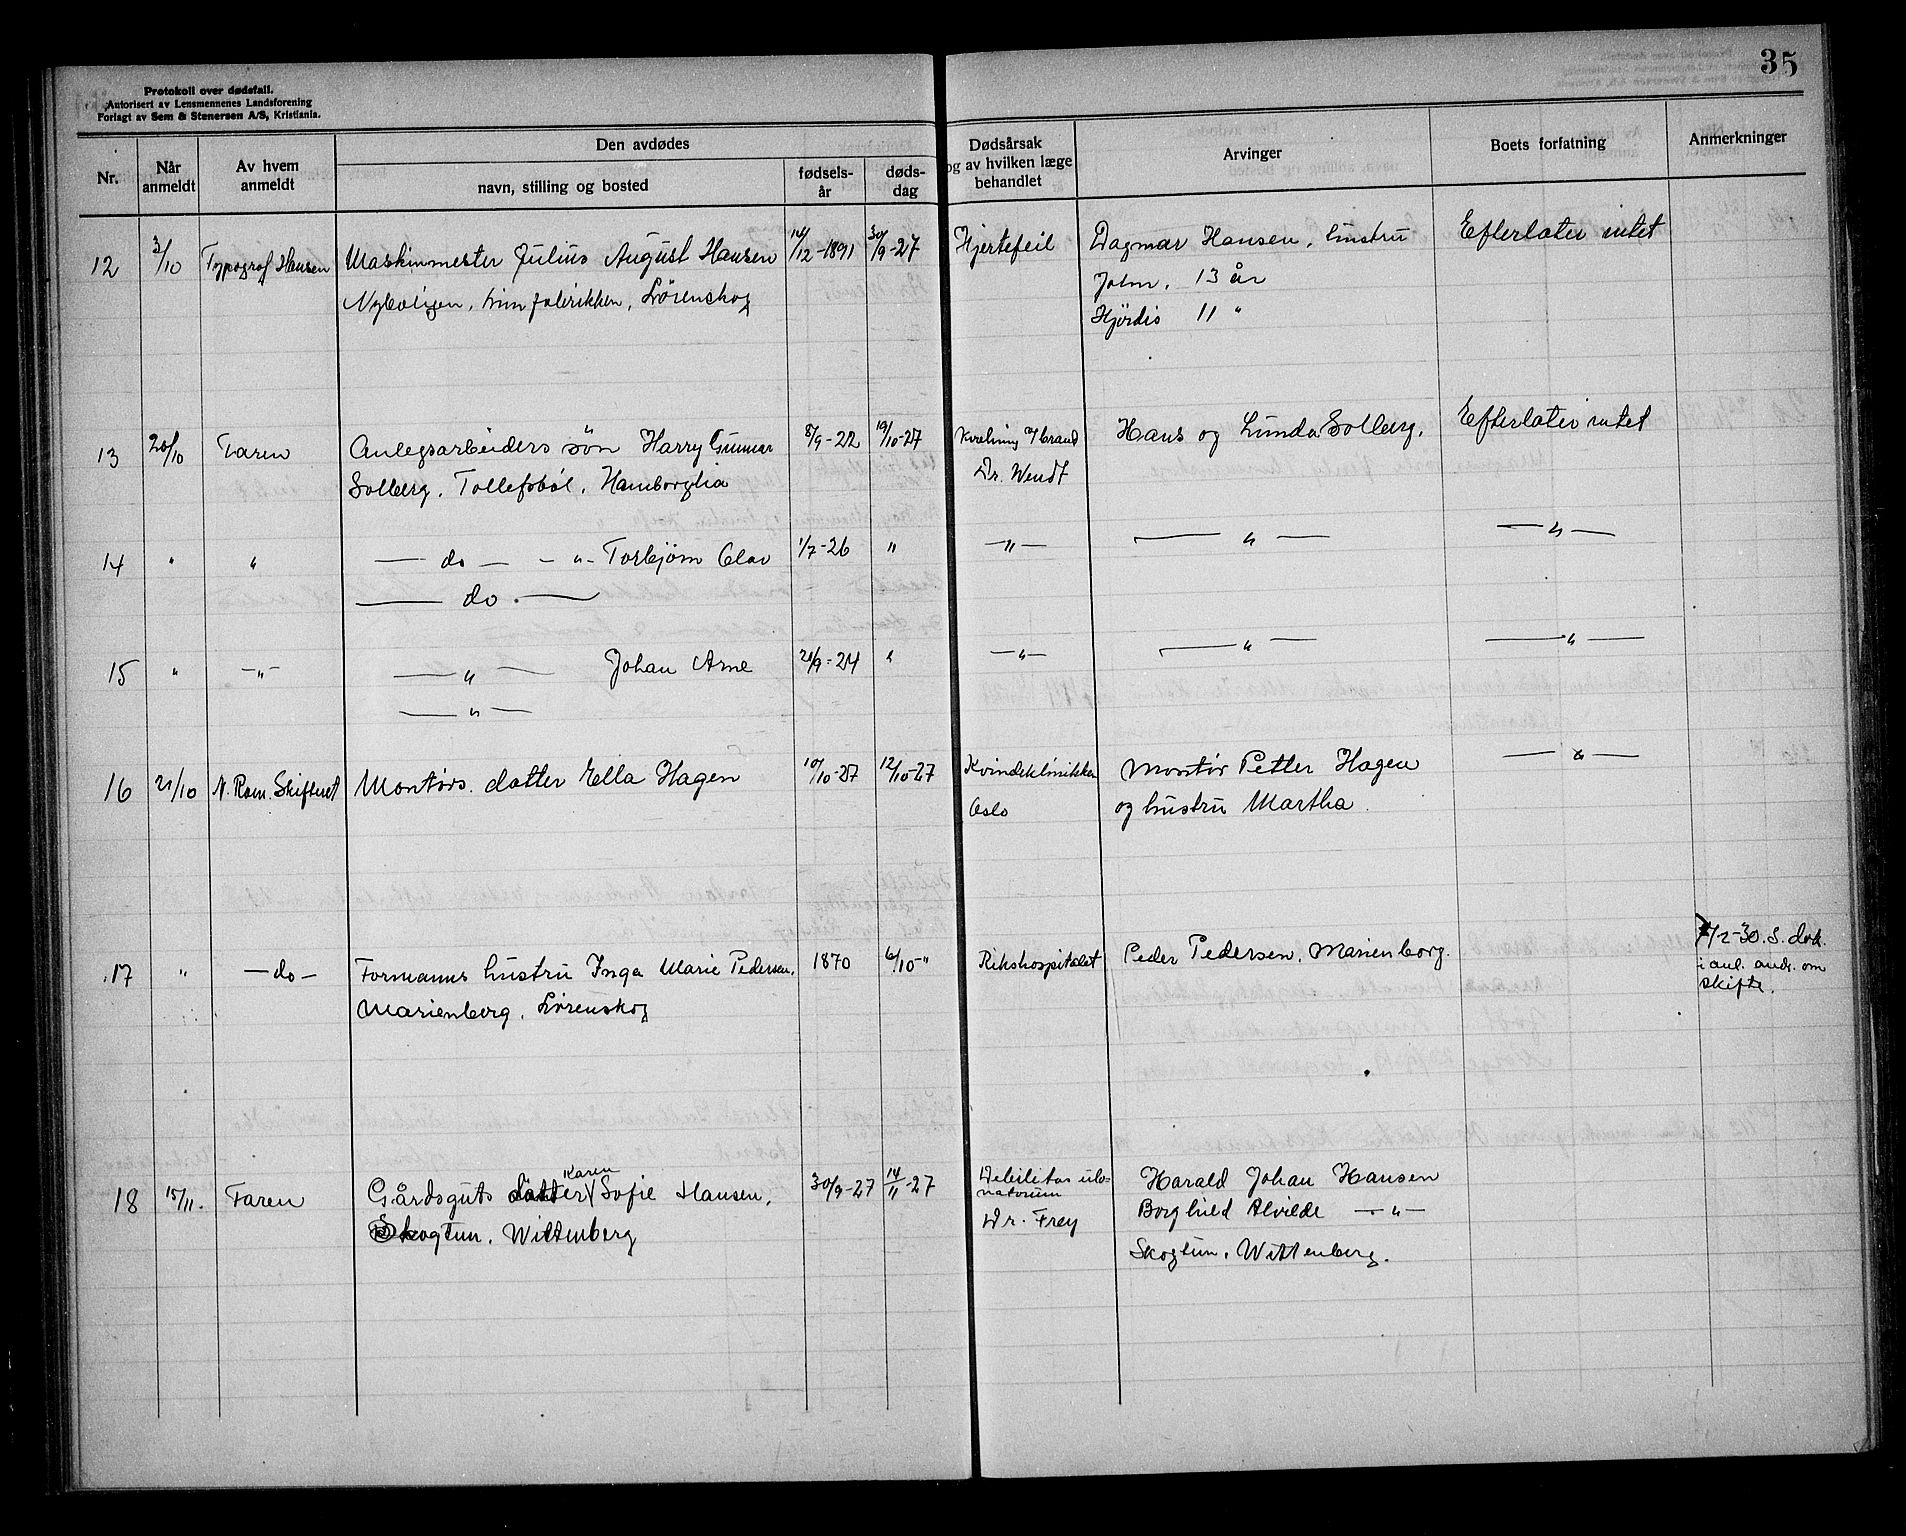 35
Protokoll over dødsfall.
Autorisert av Lensmennenes Landsforening
Forlagt av Sem & Stenersen A/S, Kristiania.
Nr. Når anmeldt Av hvem anmeldt Den avdødes Dødsårsak og av hvilken læge behandlet Arvinger Boets forfatning Anmerkninger
navn, stilling og bosted fødselsår dødsdag
12 3/10 Typograf Hansen Maskinmester Julius August Hansen 14/12-1891 30/9-27 Hjertefeil Dagmar Hansen, hustru Efterlater intet
Nyboligen, Limfabrikken, Lørenskog John, 13 år
Hjørdis 11 "
13 20/10 Faren Anlegsarbeiders søn Harry Gunnar 8/9-22 19/10-27 Kvælning v/brand Hans og Lunda Solberg. Efterlater intet
Solberg, Tollefsbøl, Hamborglia Dr. Wendt
14 " " — do — - " - Torbjørn Olav 1/7-26 " —"— — " — — " —
— do —
15 " —"— — " — Johan Arne 21/9-24 " —"— — " — — " —
— " —
16 21/10 N. Rom. Skifteret Montørs datter Ella Hagen 10/10-27 12/10-27 Kvindeklinikken Montør Petter Hagen — " —
Oslo og hustru Martha.
17 " — do — Formanns hustru Inga Marie Pedersen, 1870 6/10-" Rikshospitalet Peder Pedersen, Marienborg. 7/2-30. S. dok.
Marienborg, Lørenskog i anl. andr. om
skifte.
18 15/11. Faren Gårdsguts datter Karen Sofie Hansen, 30/9-27 14/11-27 Debilitas Harald Johan Hansen
Skogtun, Wittenberg natorum Borghild Alvilde — " —
Dr. Frey Skogtun, Wittenberg.